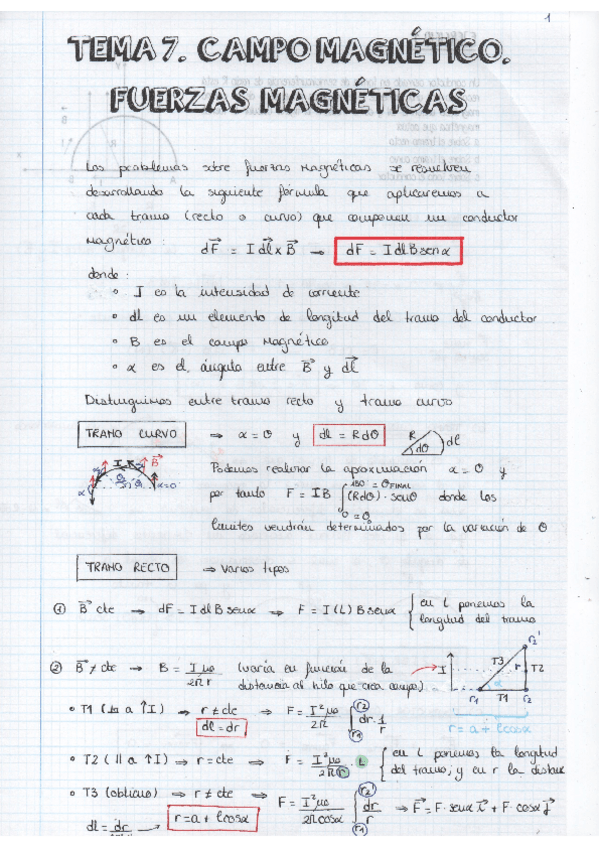 1
TEMA 7. CAMPO MAGNÉTICO.
FUERZAS MAGNÉTICAS
Los problemas sobre fuerzas magnéticas se resuelven
desarrollando la siguiente fórmula que aplicaremos a
cada tramo (recto o curvo) que componen un conductor
magnético : dF⃗ = I dl⃗ x B⃗ → dF = I dl B senα
donde :
• I es la intensidad de corriente
• dl es un elemento de longitud del tramo del conductor
• B es el campo magnético
• α es el ángulo entre B⃗ y dl⃗
Distinguimos entre tramo recto y tramo curvo
TRAMO CURVO ⇒ α = θ y dl = R dθ R dθ dl
I B⃗ α α=0 θ
Podemos realizar la aproximación α = θ y
por tanto F = IB ∫ (Rdθ) · senθ donde los
180 = θ FINAL
0 = θ
límites vendrán determinados por la variación de θ
TRAMO RECTO ⇒ varios tipos
① B⃗ cte → dF = I dl B senα → F = I (L) B senα { en L ponemos la
longitud del tramo
② B⃗ ≠ cte → B = I μo / 2π r (varía en función de la
distancia al hilo que crea campo)
I T3 r T2 r2' α r1 T1 r2
r = a + l cosα
• T1 (⊥ a ↑I) → r ≠ cte ⇒ F = I² μo / 2π ∫ dr · 1/r
r2
r1
dl = dr
• T2 ( || a ↑I) → r = cte ⇒ F = I² μo / 2π r · L { en L ponemos la longitud
del tramo, y en r la distanc
• T3 (oblicuo) → r ≠ cte ⇒ F = I² μo / 2π cosα ∫ dr / r → F⃗ = F · senα i⃗ + F · cosα j⃗
r2'
r1
dl = dr → r = a + l cosα